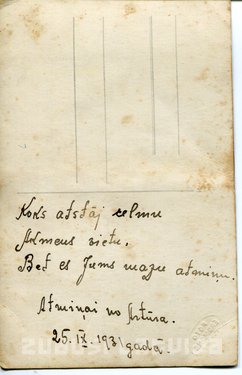 Koks atstāj celmu
Akmens vietu,
Bet es Jums mazu atmiņu.
Atmiņai no Artūra.
25. IX. 1931 gadā.